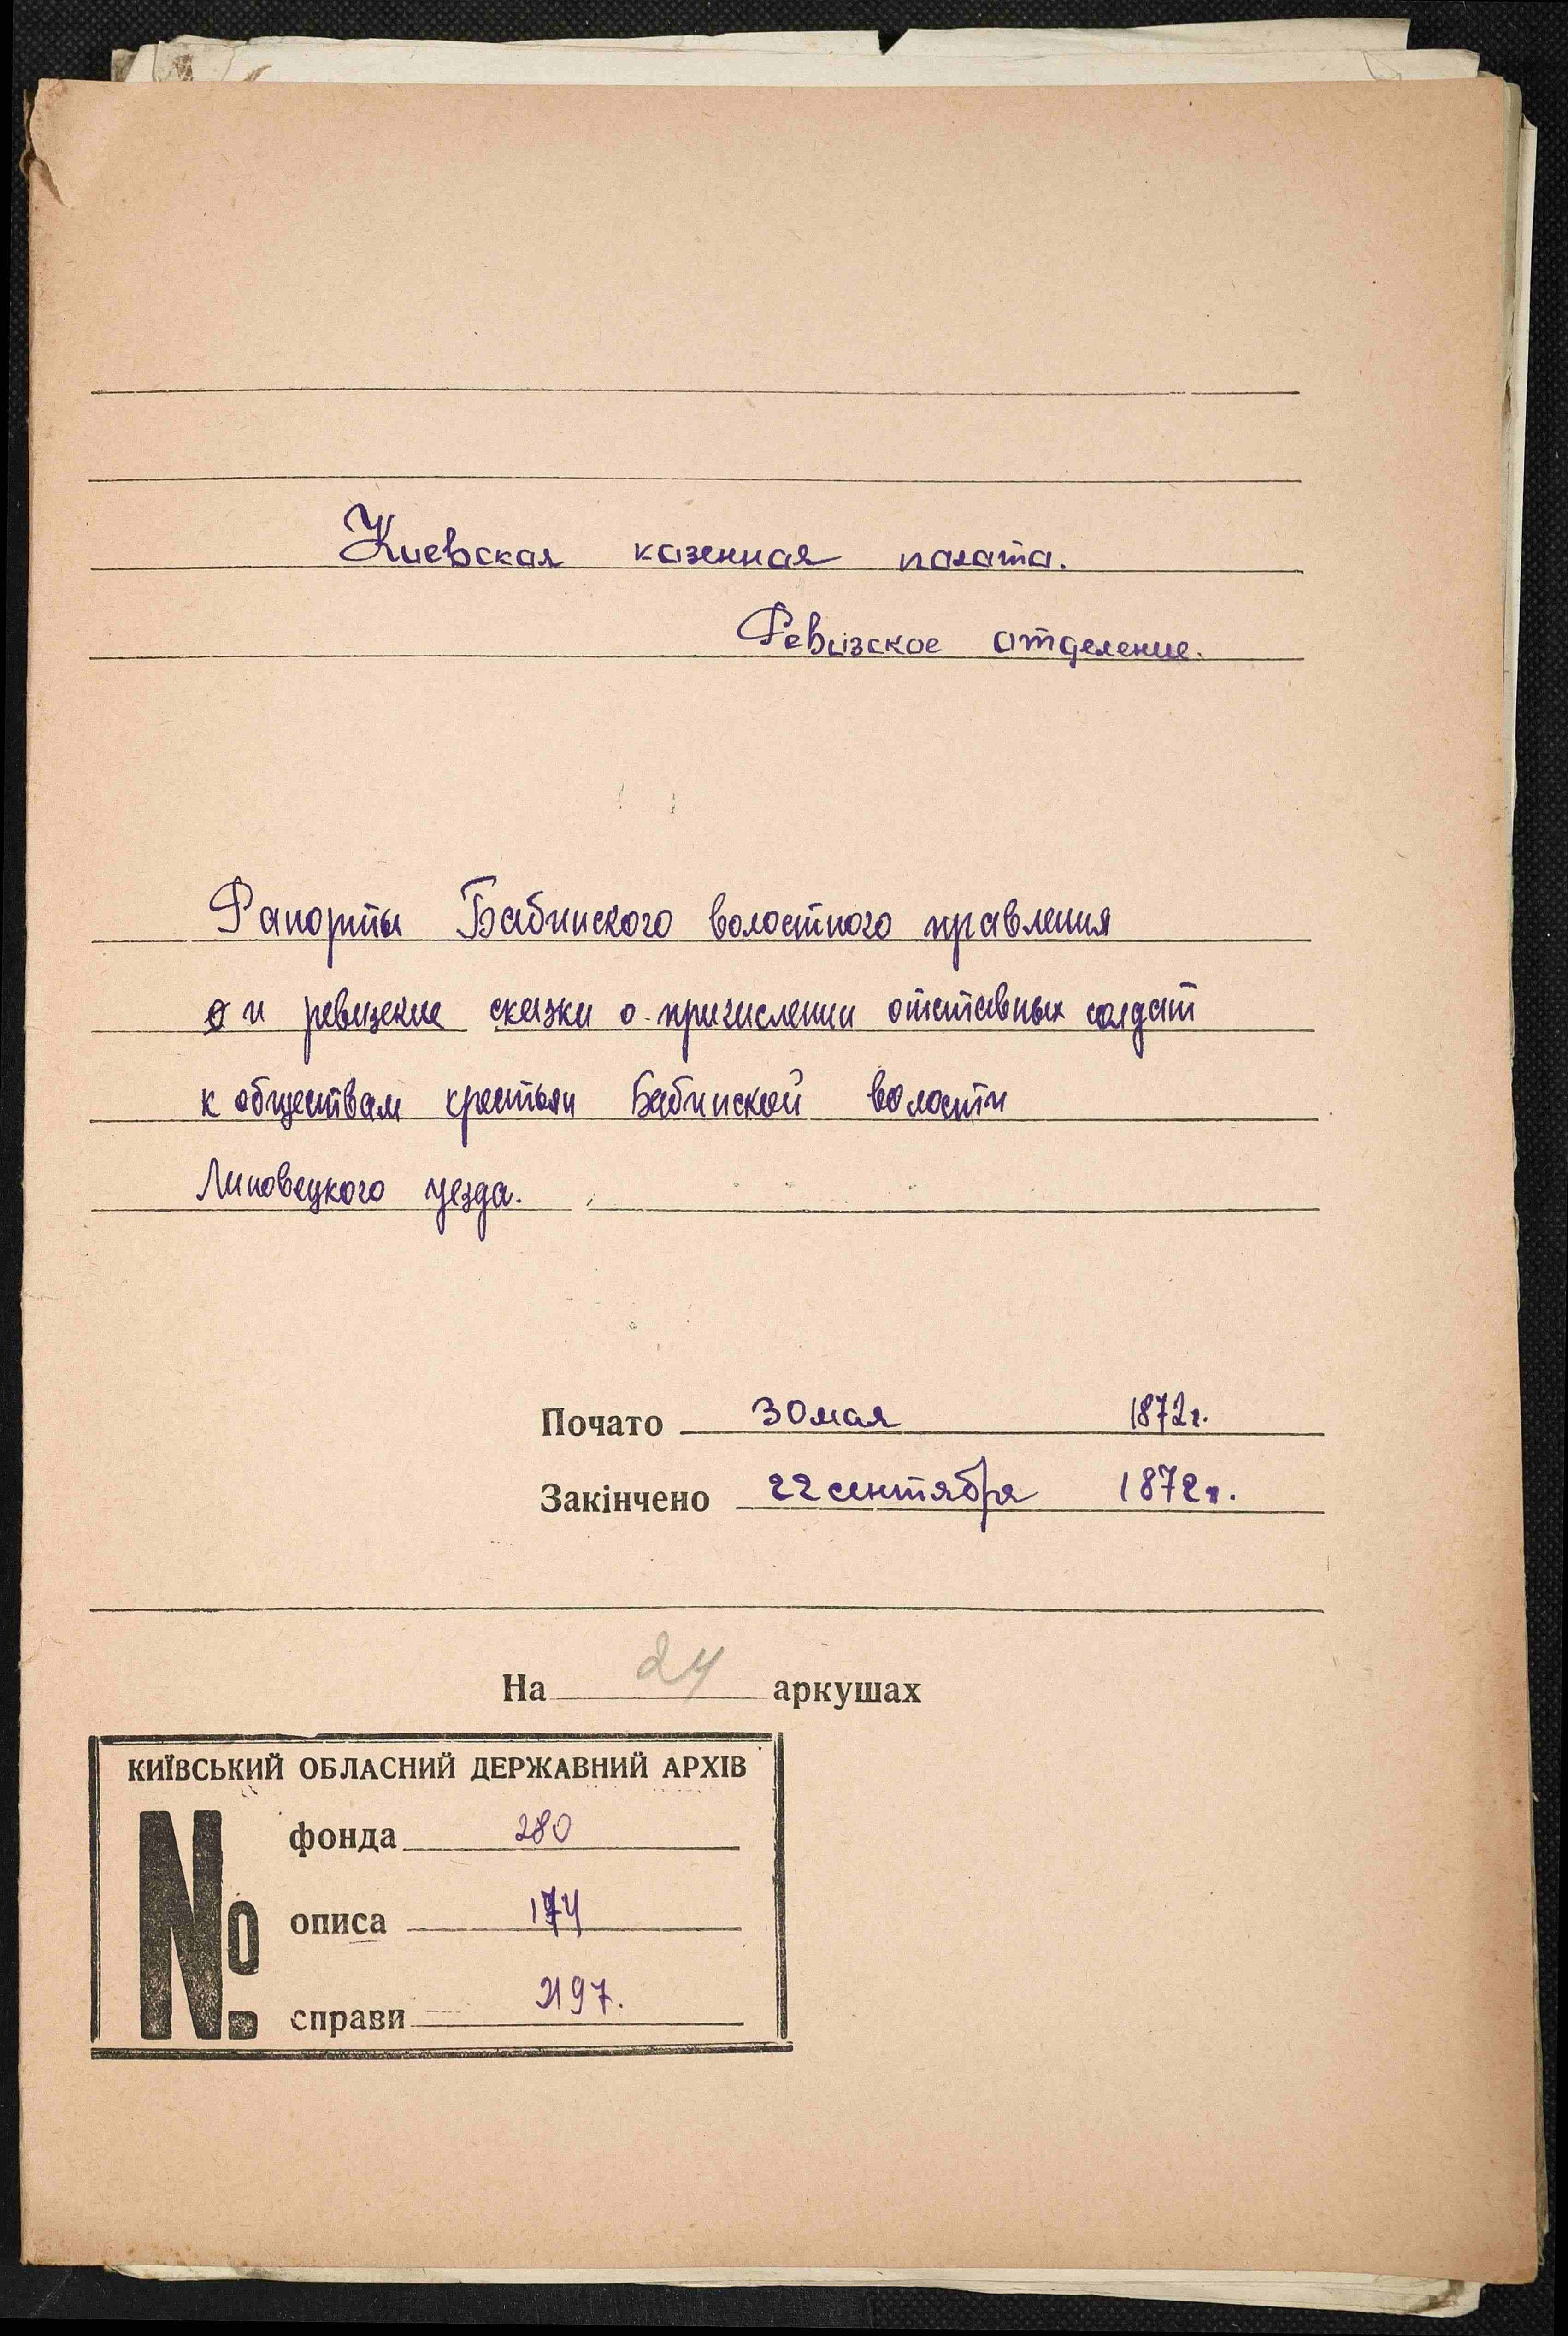 Киевская казенная палата.
Ревизское отделение.
Рапорты Бабинского волостного правления
и ревизские сказки о причислении отставных солдат
к обществам крестьян Бабинской волости
Липовецкого уезда.
Почато 30 мая 1872 г.
Закінчено 22 сентября 1872 г.
На 24 аркушах
КИЇВСЬКИЙ ОБЛАСНИЙ ДЕРЖАВНИЙ АРХІВ
№ фонда 280
описа 174
справи 2197.